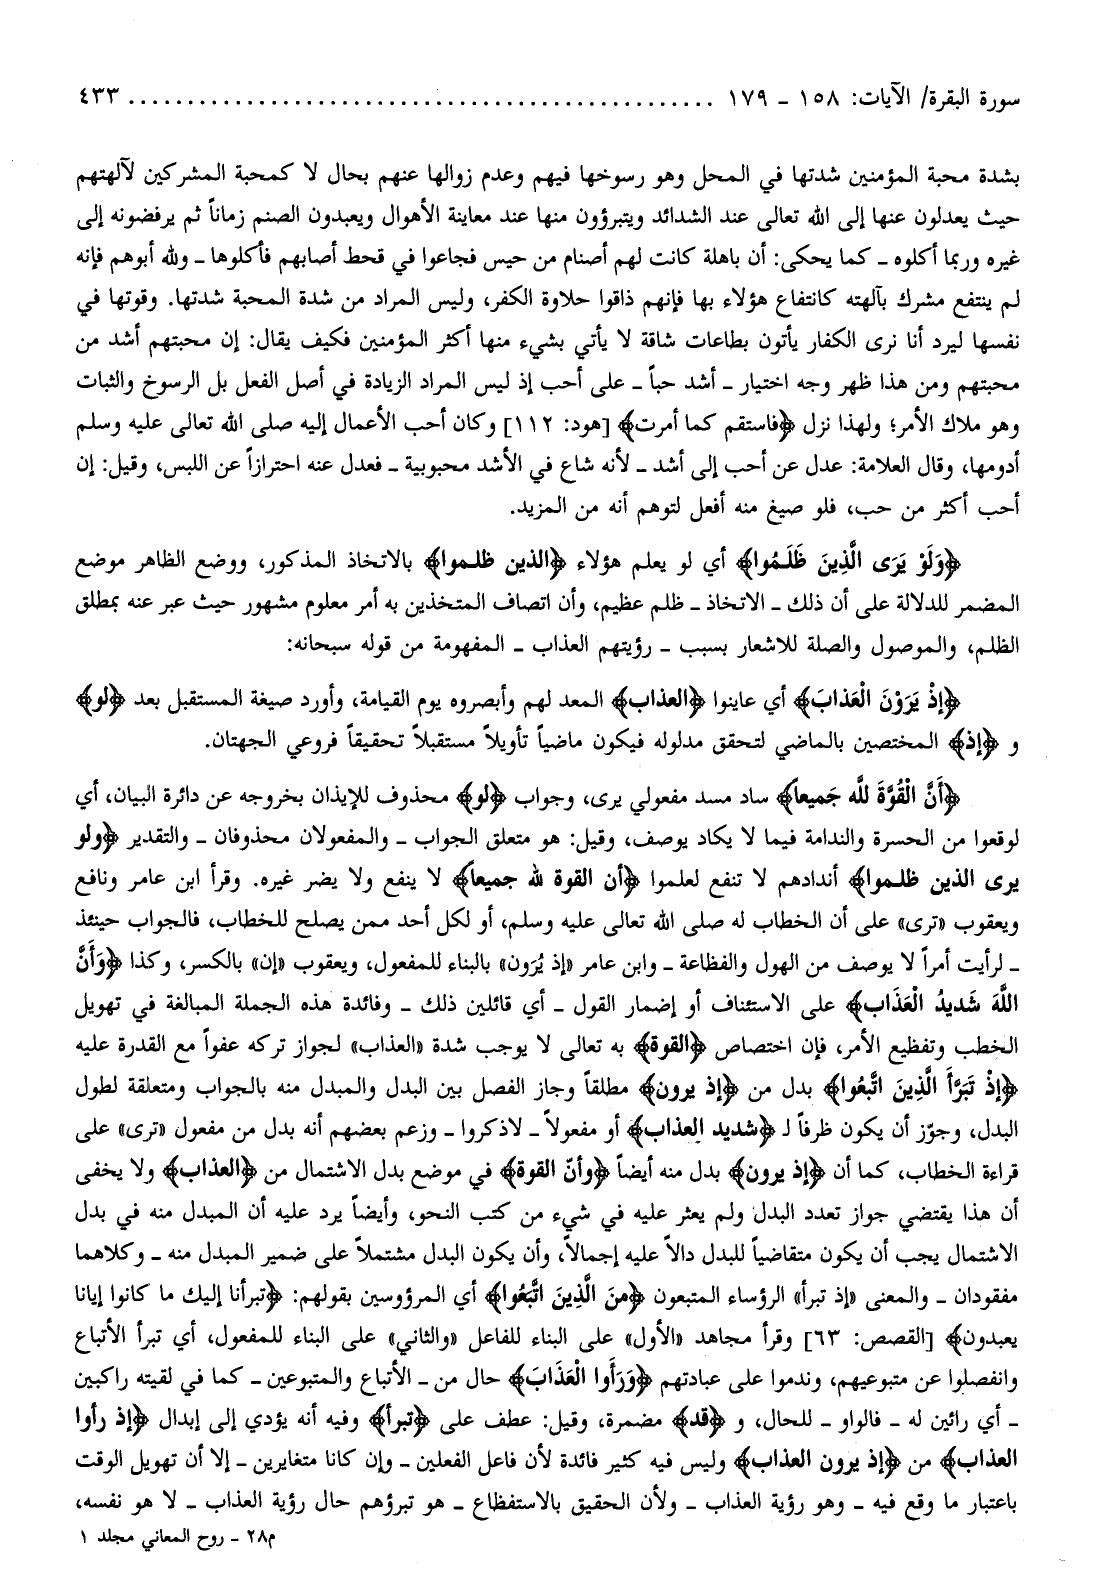 سورة البقرة/ الآيات: ١٥٨ ـ ١٧٩ ................................................ ٤٣٣
بشدة محبة المؤمنين شدتها في المحل وهو رسوخها فيهم وعدم زوالها عنهم بحال لا كمحبة المشركين لآلهتهم
حيث يعدلون عنها إلى الله تعالى عند الشدائد ويتبرؤون منها عند معاينة الأهوال ويعبدون الصنم زماناً ثم يرفضونه إلى
غيره وربما أكلوه ـ كما يحكى: أن باهلة كانت لهم أصنام من حيس فجاعوا في قحط أصابهم فأكلوها ـ ولله أبوهم فإنه
لم ينتفع مشرك بآلهته كانتفاع هؤلاء بها فإنهم ذاقوا حلاوة الكفر، وليس المراد من شدة المحبة شدتها. وقوتها في
نفسها ليرد أنا نرى الكفار يأتون بطاعات شاقة لا يأتي بشيء منها أكثر المؤمنين فكيف يقال: إن محبتهم أشد من
محبتهم ومن هذا ظهر وجه اختيار ـ أشد حباً ـ على أحب إذ ليس المراد الزيادة في أصل الفعل بل الرسوخ والثبات
وهو ملاك الأمر؛ ولهذا نزل ﴿فاستقم كما أمرت﴾ [هود: ١١٢] وكان أحب الأعمال إليه صلى الله تعالى عليه وسلم
أدومها، وقال العلامة: عدل عن أحب إلى أشد ـ لأنه شاع في الأشد محبوبية ـ فعدل عنه احترازاً عن اللبس، وقيل: إن
أحب أكثر من حب، فلو صيغ منه أفعل لتوهم أنه من المزيد.
﴿وَلَوْ يَرَى الَّذِينَ ظَلَمُوا﴾ أي لو يعلم هؤلاء ﴿الذين ظلموا﴾ بالاتخاذ المذكور، ووضع الظاهر موضع
المضمر للدلالة على أن ذلك ـ الاتخاذ ـ ظلم عظيم، وأن اتصاف المتخذين به أمر معلوم مشهور حيث عبر عنه بمطلق
الظلم، والموصول والصلة للاشعار بسبب ـ رؤيتهم العذاب ـ المفهومة من قوله سبحانه:
﴿إِذْ يَرَوْنَ الْعَذَابَ﴾ أي عاينوا ﴿العذاب﴾ المعد لهم وأبصروه يوم القيامة، وأورد صيغة المستقبل بعد ﴿لو﴾
و ﴿إذ﴾ المختصين بالماضي لتحقق مدلوله فيكون ماضياً تأويلاً مستقبلاً تحقيقاً فروعي الجهتان.
﴿أَنَّ الْقُوَّةَ للَّه جَميعاً﴾ ساد مسد مفعولي يرى، وجواب ﴿لو﴾ محذوف للإيذان بخروجه عن دائرة البيان، أي
لوقعوا من الحسرة والندامة فيما لا يكاد يوصف، وقيل: هو متعلق الجواب ـ والمفعولان محذوفان ـ والتقدير ﴿ولو
يرى الذين ظلموا﴾ أندادهم لا تنفع لعلموا ﴿أن القوة لله جميعاً﴾ لا ينفع ولا يضر غيره. وقرأ ابن عامر ونافع
ويعقوب «ترى» على أن الخطاب له صلى الله تعالى عليه وسلم، أو لكل أحد ممن يصلح للخطاب، فالجواب حينئذ
ـ لرأيت أمراً لا يوصف من الهول والفظاعة ـ وابن عامر «إذ يُرَون» بالبناء للمفعول، ويعقوب «إن» بالكسر، وكذا ﴿وَأَنَّ
اللَّهَ شَديدُ الْعَذَاب﴾ على الاستئناف أو إضمار القول ـ أي قائلين ذلك ـ وفائدة هذه الجملة المبالغة في تهويل
الخطب وتفظيع الأمر، فإن اختصاص ﴿القوة﴾ به تعالى لا يوجب شدة «العذاب» لجواز تركه عفواً مع القدرة عليه
﴿إِذْ تَبَرَّأَ الَّذِينَ اتُّبِعُوا﴾ بدل من ﴿إذ يرون﴾ مطلقاً وجاز الفصل بين البدل والمبدل منه بالجواب ومتعلقة لطول
البدل، وجوّز أن يكون ظرفاً لـ ﴿شديد العذاب﴾ أو مفعولاً ـ لاذكروا ـ وزعم بعضهم أنه بدل من مفعول «ترى» على
قراءة الخطاب، كما أن ﴿إذ يرون﴾ بدل منه أيضاً ﴿وأنّ القوة﴾ في موضع بدل الاشتمال من ﴿العذاب﴾ ولا يخفى
أن هذا يقتضي جواز تعدد البدل ولم يعثر عليه في شيء من كتب النحو، وأيضاً يرد عليه أن المبدل منه في بدل
الاشتمال يجب أن يكون متقاضياً للبدل دالاً عليه إجمالاً، وأن يكون البدل مشتملاً على ضمير المبدل منه ـ وكلاهما
مفقودان ـ والمعنى «إذ تبرأ» الرؤساء المتبعون ﴿منَ الَّذِينَ اتَّبَعُوا﴾ أي المرؤوسين بقولهم: ﴿تبرأنا إليك ما كانوا إيانا
يعبدون﴾ [القصص: ٦٣] وقرأ مجاهد «الأول» على البناء للفاعل «والثاني» على البناء للمفعول، أي تبرأ الأتباع
وانفصلوا عن متبوعيهم، وندموا على عبادتهم ﴿وَرَأَوا الْعَذَابَ﴾ حال من ـ الأتباع والمتبوعين ـ كما في لقيته راكبين
ـ أي رائين له ـ فالواو ـ للحال، و ﴿قد﴾ مضمرة، وقيل: عطف على ﴿تبرأ﴾ وفيه أنه يؤدي إلى إبدال ﴿إذ رأوا
العذاب﴾ من ﴿إذ يرون العذاب﴾ وليس فيه كثير فائدة لأن فاعل الفعلين ـ وإن كانا متغايرين ـ إلا أن تهويل الوقت
باعتبار ما وقع فيه ـ وهو رؤية العذاب ـ ولأن الحقيق بالاستفظاع ـ هو تبرؤهم حال رؤية العذاب ـ لا هو نفسه،
م٢٨ ـ روح المعاني مجلد ١